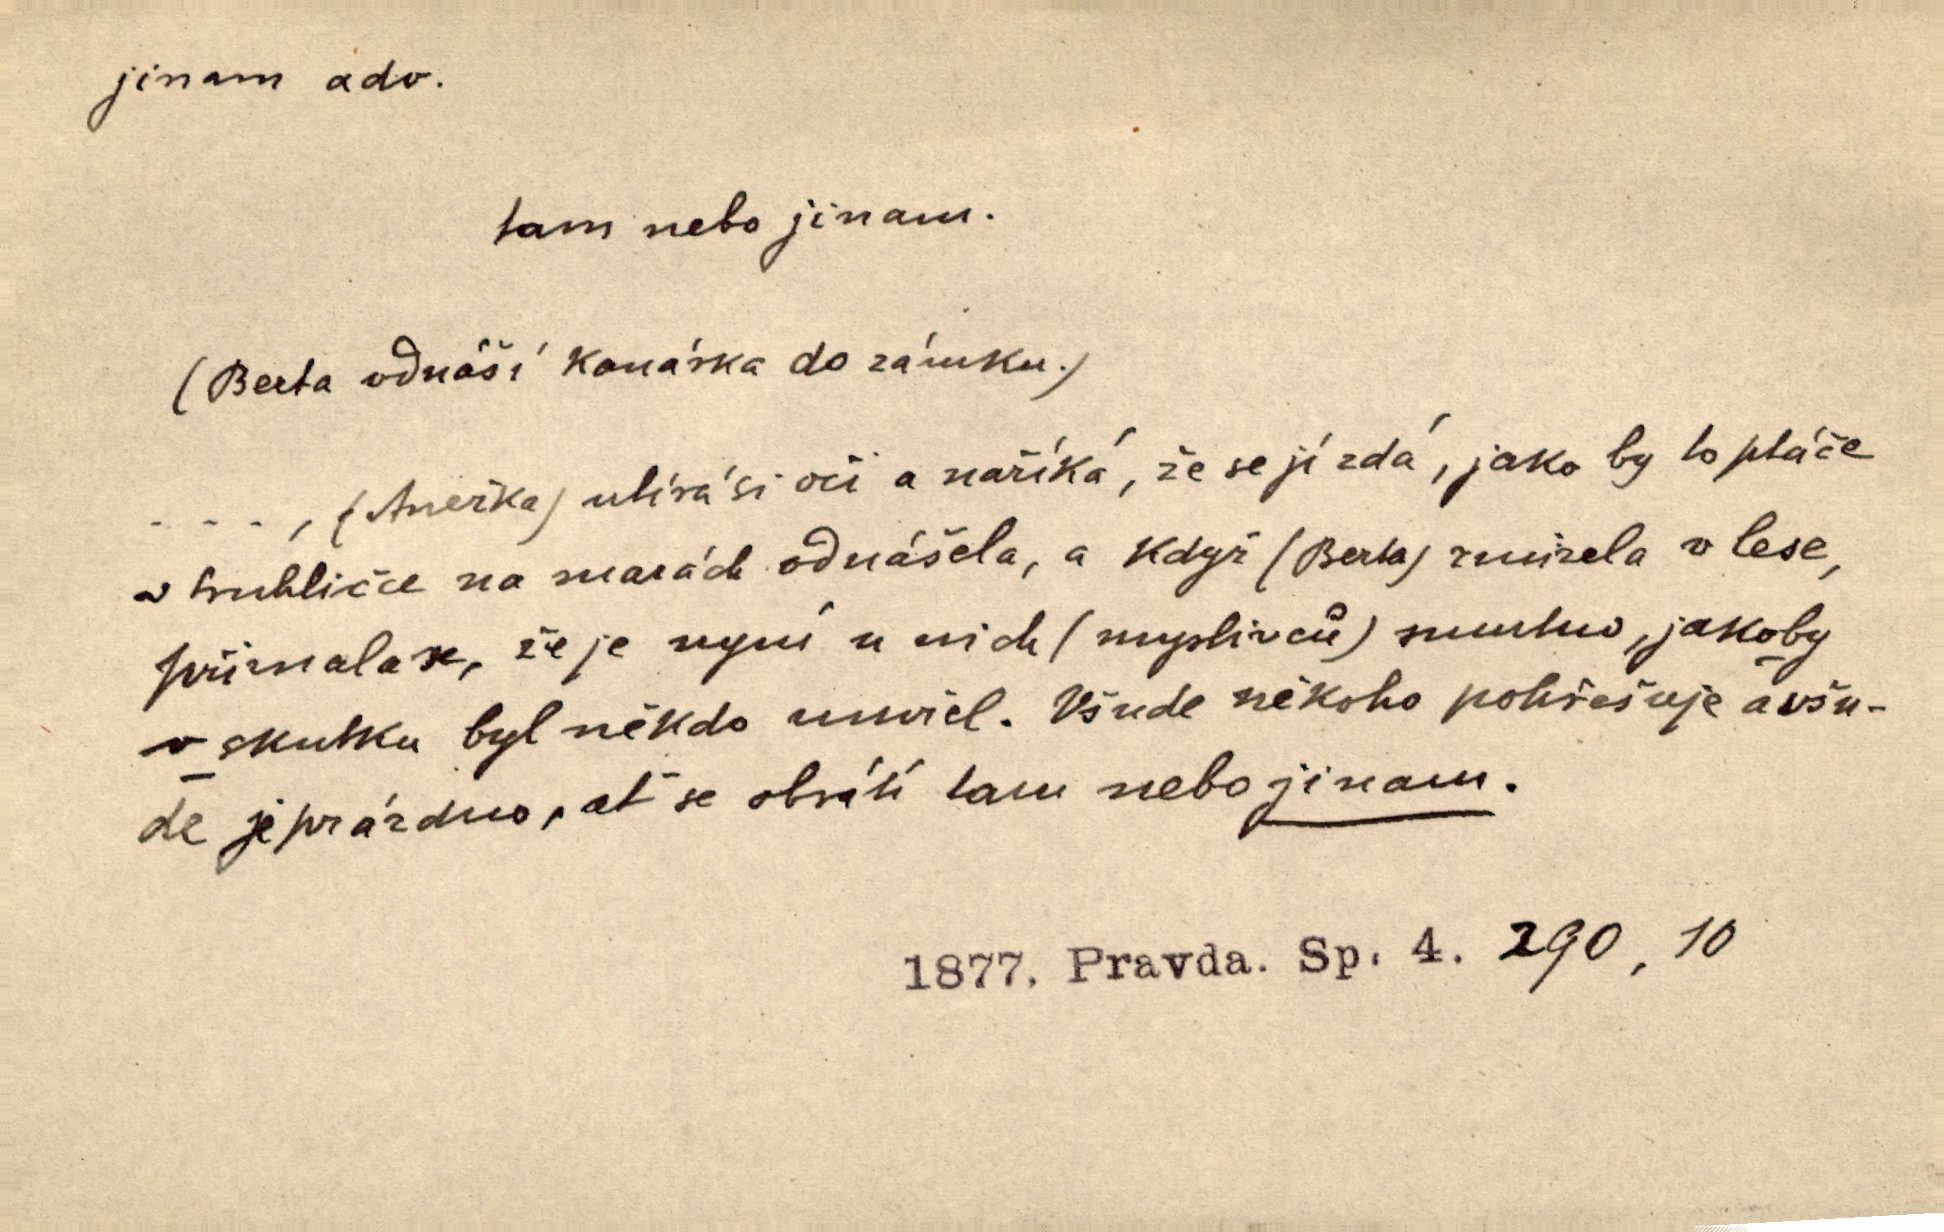 jinam adv.
tam nebo jinam.
(Berta odnáší kanárka do zámku.)
. . . . , (Anežka) utírá si oči a naříká, že se jí zdá, jako by to ptáče
v truhličce na marách odnášela, a když (Berta) zmizela v lese,
přiznala se, že je nyní u nich (myslivců) smutno, jakoby
v skutku byl někdo umřel. Všude někoho pohřešuje a všu-
de je prázdno, ať se obrátí tam nebo jinam.
1877. Pravda. Sp. 4. 290, 10